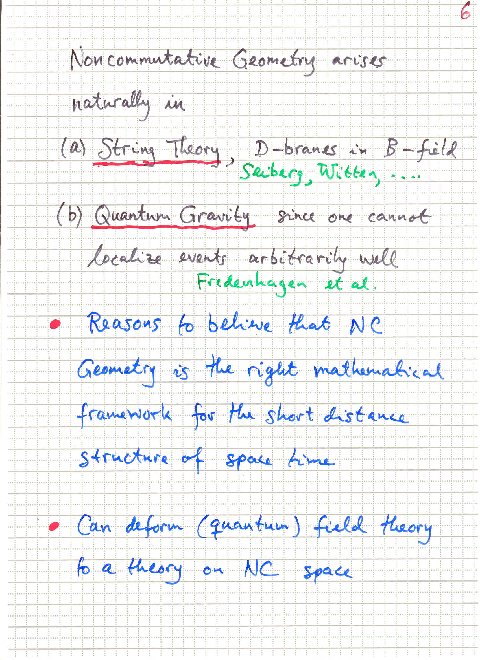 6
Noncommutative Geometry arises
naturally in
(a) String Theory, D-branes in B-field
Seiberg, Witten, ....
(b) Quantum Gravity since one cannot
localize events arbitrarily well
Fredenhagen et al.
• Reasons to believe that NC
Geometry is the right mathematical
framework for the short distance
structure of space time
• Can deform (quantum) field theory
to a theory on NC space